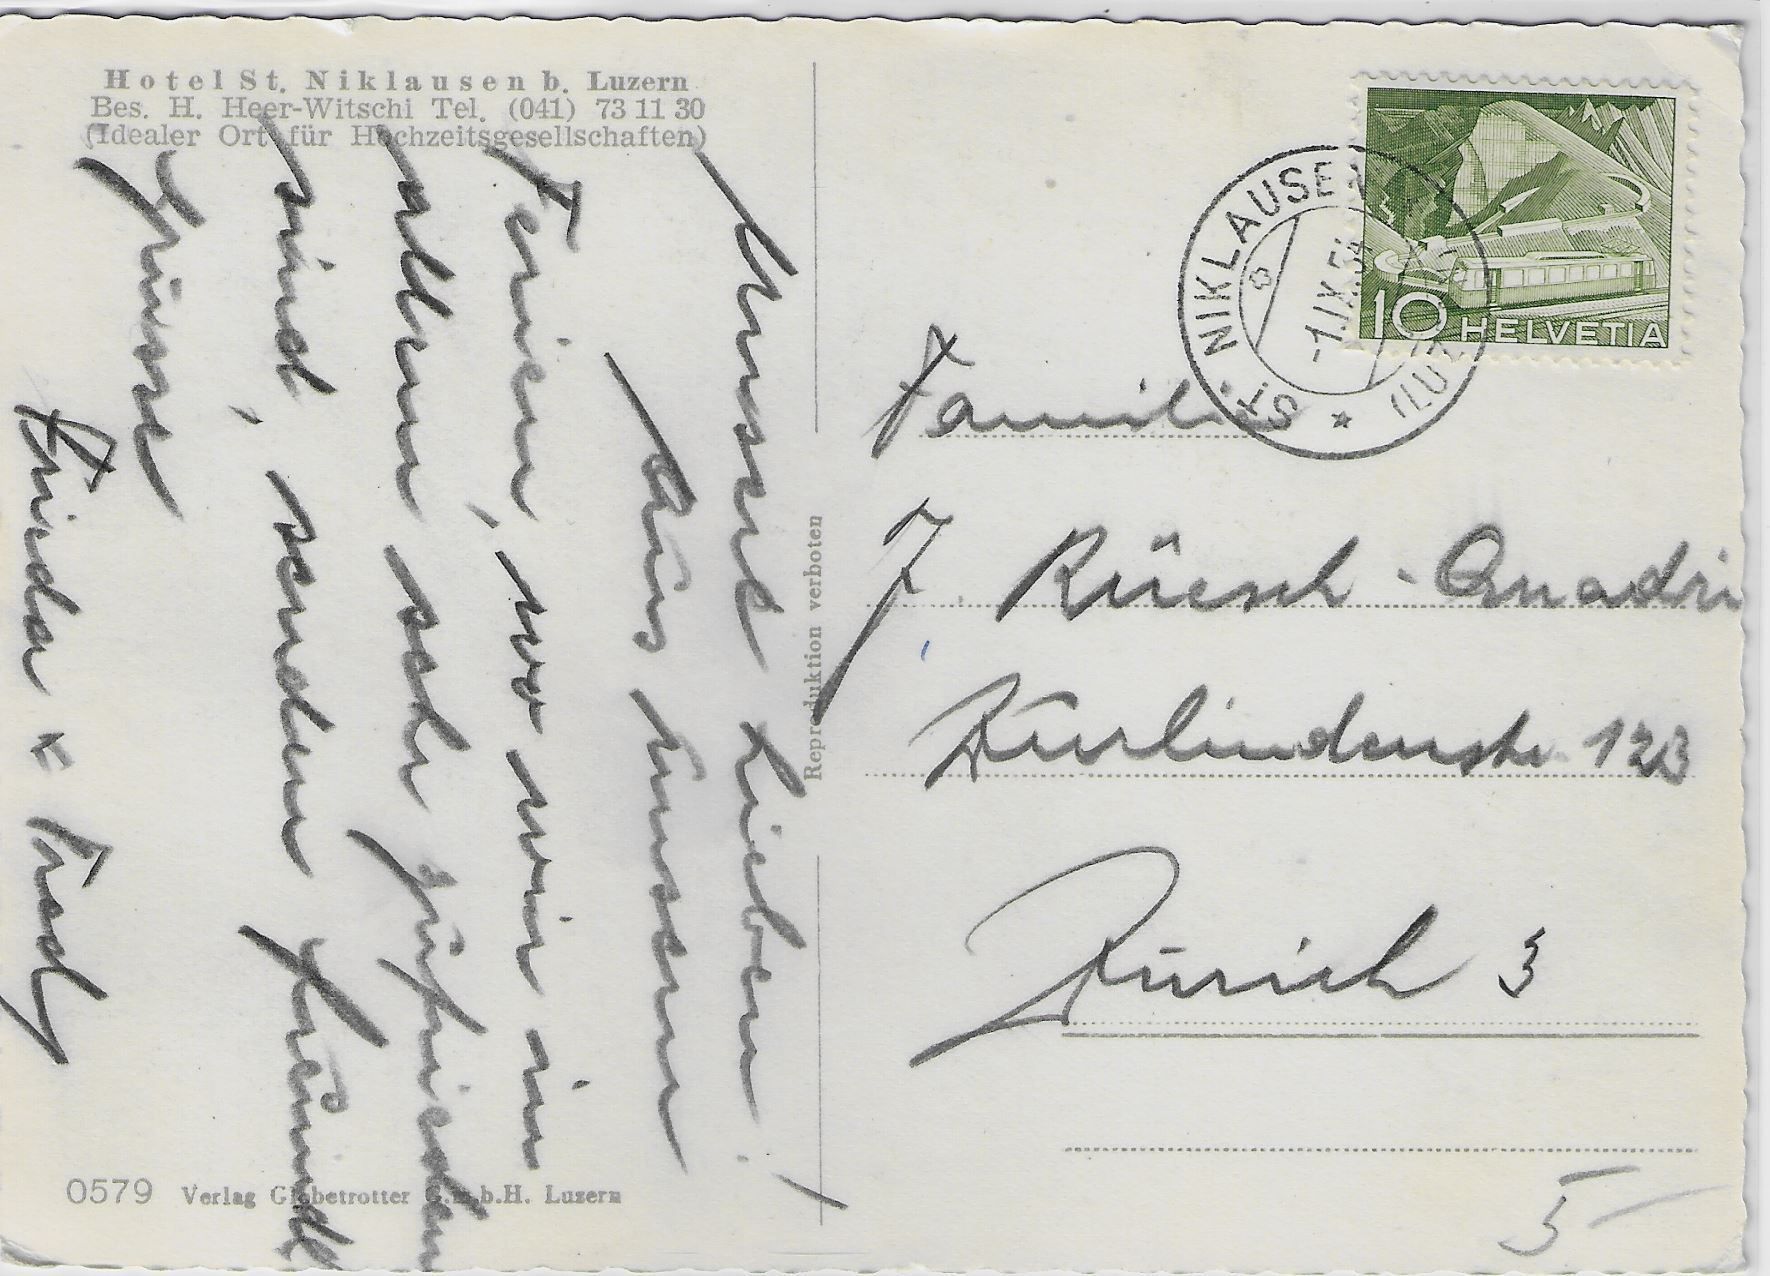 Hotel St. Niklausen b. Luzern
Bes. H. Heer-Witschi Tel. (041) 73 11 30
(Idealer Ort für Hochzeitsgesellschaften)
Unsere Lieben!
Aus unseren
Ferien, wo wir in
allem sehr zufrieden
sind, senden freundl
Grüsse
Frieda
Reproduktion verboten
0579 Verlag Globetrotter G.m.b.H. Luzern
10 HELVETIA
ST. NIKLAUSEN (LUZ
-1.IX.54
Familie
J. Rüesch - Quadri
Zurlindenstr. 123
Zürich 3
5-